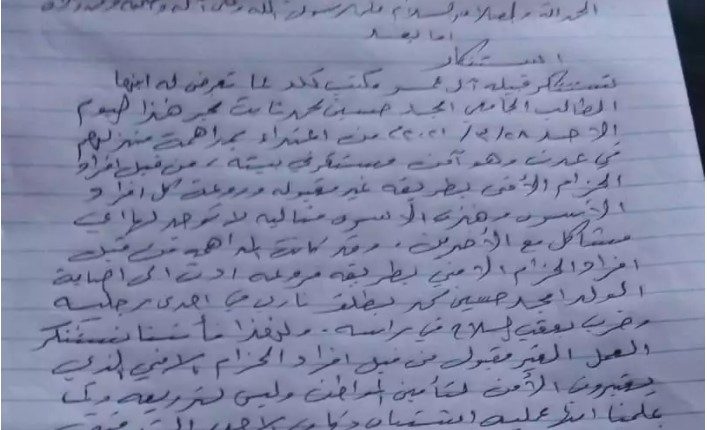 الحمد لله والصلاة والسلام على رسول الله وعلى آله وصحبه ومن والاه
اما بعد
استنكار
تستنكر قبيلة آل عمر مكتب كلد عما تعرض له ابنها
الطالب الجامعي امجد حسين محمد ثابت عمر هذا اليوم
الاحد ٢٨/٣/٢٠٢١ من اعتداء بمداهمة منزلهم
في عدن وهو آمن ومستقر في بيته، من قبل افراد
الحزام الأمني بطريقة غير مقبولة وروعت كل افراد
الأسرة وهذه الأسرة مثالية لا توجد لها اي
مشاكل مع الآخرين. وقد كانت المداهمة من قبل
افراد الحزام الأمني بطريقة مروعه ادت الى اصابة
الولد امجد حسين محمد بطلق ناري في احدى رجليه
وضرب بعقب السلاح في راسه. ولهذا فأننا نستنكر
العمل الغير مقبول من قبل افراد الحزام الامني الذي
يعتبرون الأمن لتأمين المواطن وليس لترويعه
علمنا انه عليه اشتباه